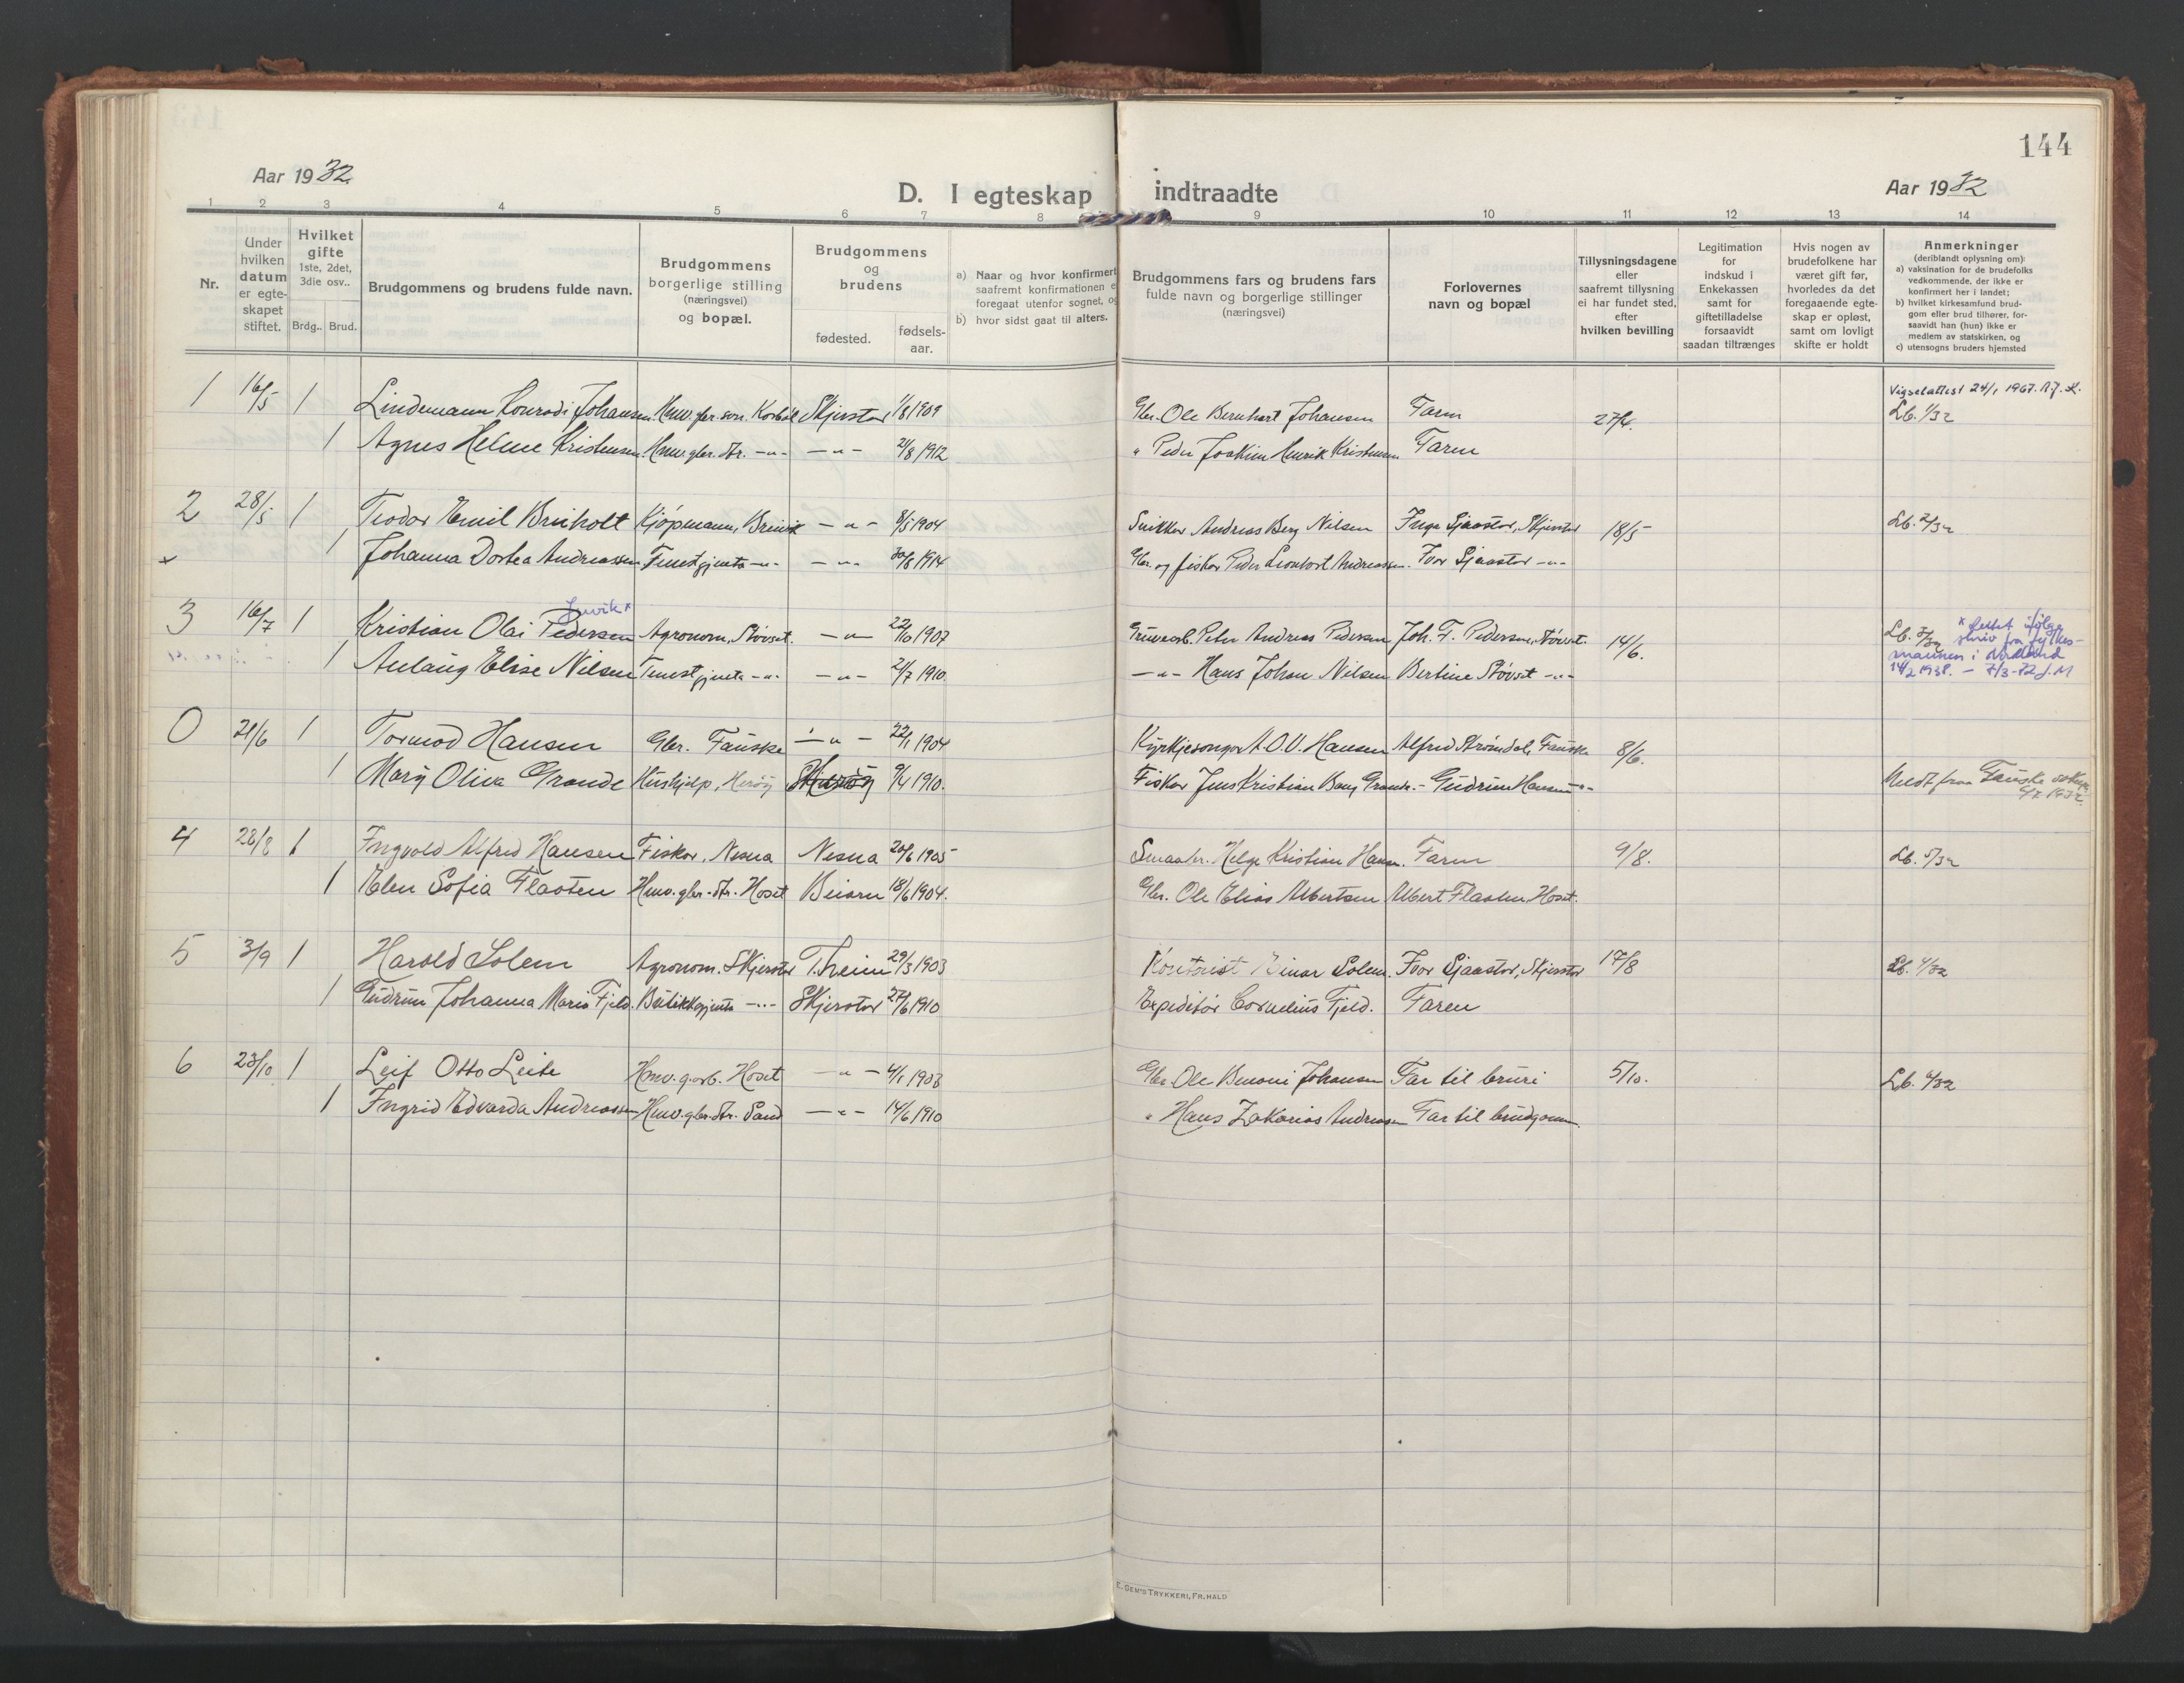 144
Aar 1932
D. I egteskap indtraadte
Aar 1932
1 2 3 4 5 6 7 8 9 10 11 12 13 14
Nr.
Under hvilken datum er egte-skapet stiftet.
Hvilket gifte
1ste, 2det, 3die osv..
Brdg.. Brud.
Brudgommens og brudens fulde navn.
Brudgommens borgerlige stilling (næringsvei) og bopæl.
Brudgommens og brudens
fødested.
fødsels-aar.
a) Naar og hvor konfirmert
saafremt konfirmationen e
foregaat utenfor sognet, og
b) hvor sidst gaat til alters.
Brudgommens fars og brudens fars
fulde navn og borgerlige stillinger
(næringsvei)
Forlovernes
navn og bopæl
Tillysningsdagene
eller
saafremt tillysning
ei har fundet sted,
efter
hvilken bevilling
Legitimation
for
indskud i
Enkekassen
samt for
giftetilladelse
forsaavidt
saadan tiltrænges
Hvis nogen av
brudefolkene har
været gift før,
hvorledes da det
foregaaende egte-
skap er opløst,
samt om lovligt
skifte er holdt
Anmerkninger
(deriblandt oplysning om):
a) vaksination for de brudefolks
vedkommende, der ikke er
konfirmert her i landet;
b) hvilket kirkesamfund brud-
gom eller brud tilhører, for-
saavidt han (hun) ikke er
medlem av statskirken, og
c) utensogns bruders hjemsted
Vigselattest 24/1 1967.
1 16/5 1 Lindemann Konradi Johansen. Skjerstad 1/8 1909 Gbr. Ole Bernhart Johansen Faren 27/4. Lb. 1/32
1 Agnes Helene Kristensen. Hmv. gbr. dtr. -"- -"- 21/8 1912 " Peder Joakim Henrik Kristensen Faren
2 28/5 1 Teodor Emil Breiholt Kjøpmann, Breivik -"- 8/5 1904 Snikkar Andreas Berg Nilsen Inga Sjaastad, Skjerstad 18/5 Lb. 2/32
x 1 Johanna Dortea Andreassen Tenestgjenta -"- -"- 30/8 1914 Gbr. og fiskar Peder Leonhart Andreassen. Ivar Sjaastad -"-
Juvik x
3 16/7 1 Kristian Olai Pedersen Agronom, Støvset. -"- 22/10 1907 Gruvearb. Peter Andreas Pedersen Joh. F. Pedersen, Støvset. 14/6. Lb. 3/32
x Rettet ifølge skriv fra fylkes-
mannen i Nordland
14/2 1938. - 7/3-72 J.M
1 Anlaug Elise Nilsen Tenestgjenta -"- -"- 21/7 1910. -"- Hans Johan Nilsen Bertine Støvset -"-
0 21/6 1 Tormod Hansen Gbr. Fauske -"- 22/1 1904 Kyrkjesongar A.O.U. Hansen Alfred Strømdal, Fauske 8/6.
1 Mary Oliva Grande Hushjelp, Herøy 9/4 1910. Fiskar Jens Kristian Bang Grande. - Gudrun Hansen -"- Meldt fraa Fauske
4 28/8 1 Ingvald Alfred Hansen Fiskar, Nesna Nesna 20/6 1905 Smaabr. Helge Kristian Hansen. Faren 9/8. Lb. 5/32
1 Elen Sofia Flaaten Hmv. gbr. dtr. Hoset Beiarn 18/6 1904. Gbr. Ole Elias Albertsen Albert Flaaten, Hoset.
5 3/9 1 Harald Solem Agronom. Skjerstad T.heim 29/3 1903 Kontorist Einar Solem. Ivar Sjaastad, Skjerstad 17/8 Lb. 4/32
1 Gudrun Johanna Marie Fjeld. Butikkgjenta -"- Skjerstad 27/6 1910 Expeditør Cornelius Fjeld. Faren
6 23/10 1 Leif Otto Leite Hmv. g.arb. Hoset -"- 4/1 1908 Gbr. Ole Benoni Johansen Far til bruri 5/10. Lb. 6/32
1 Ingrid Edvarda Andreassen Hmv. gbr. dtr. Sand -"- 14/6 1910 " Hans Zakarias Andreassen Far til brudgom.
E. SEM'S TRYKKERI, FR.HALD